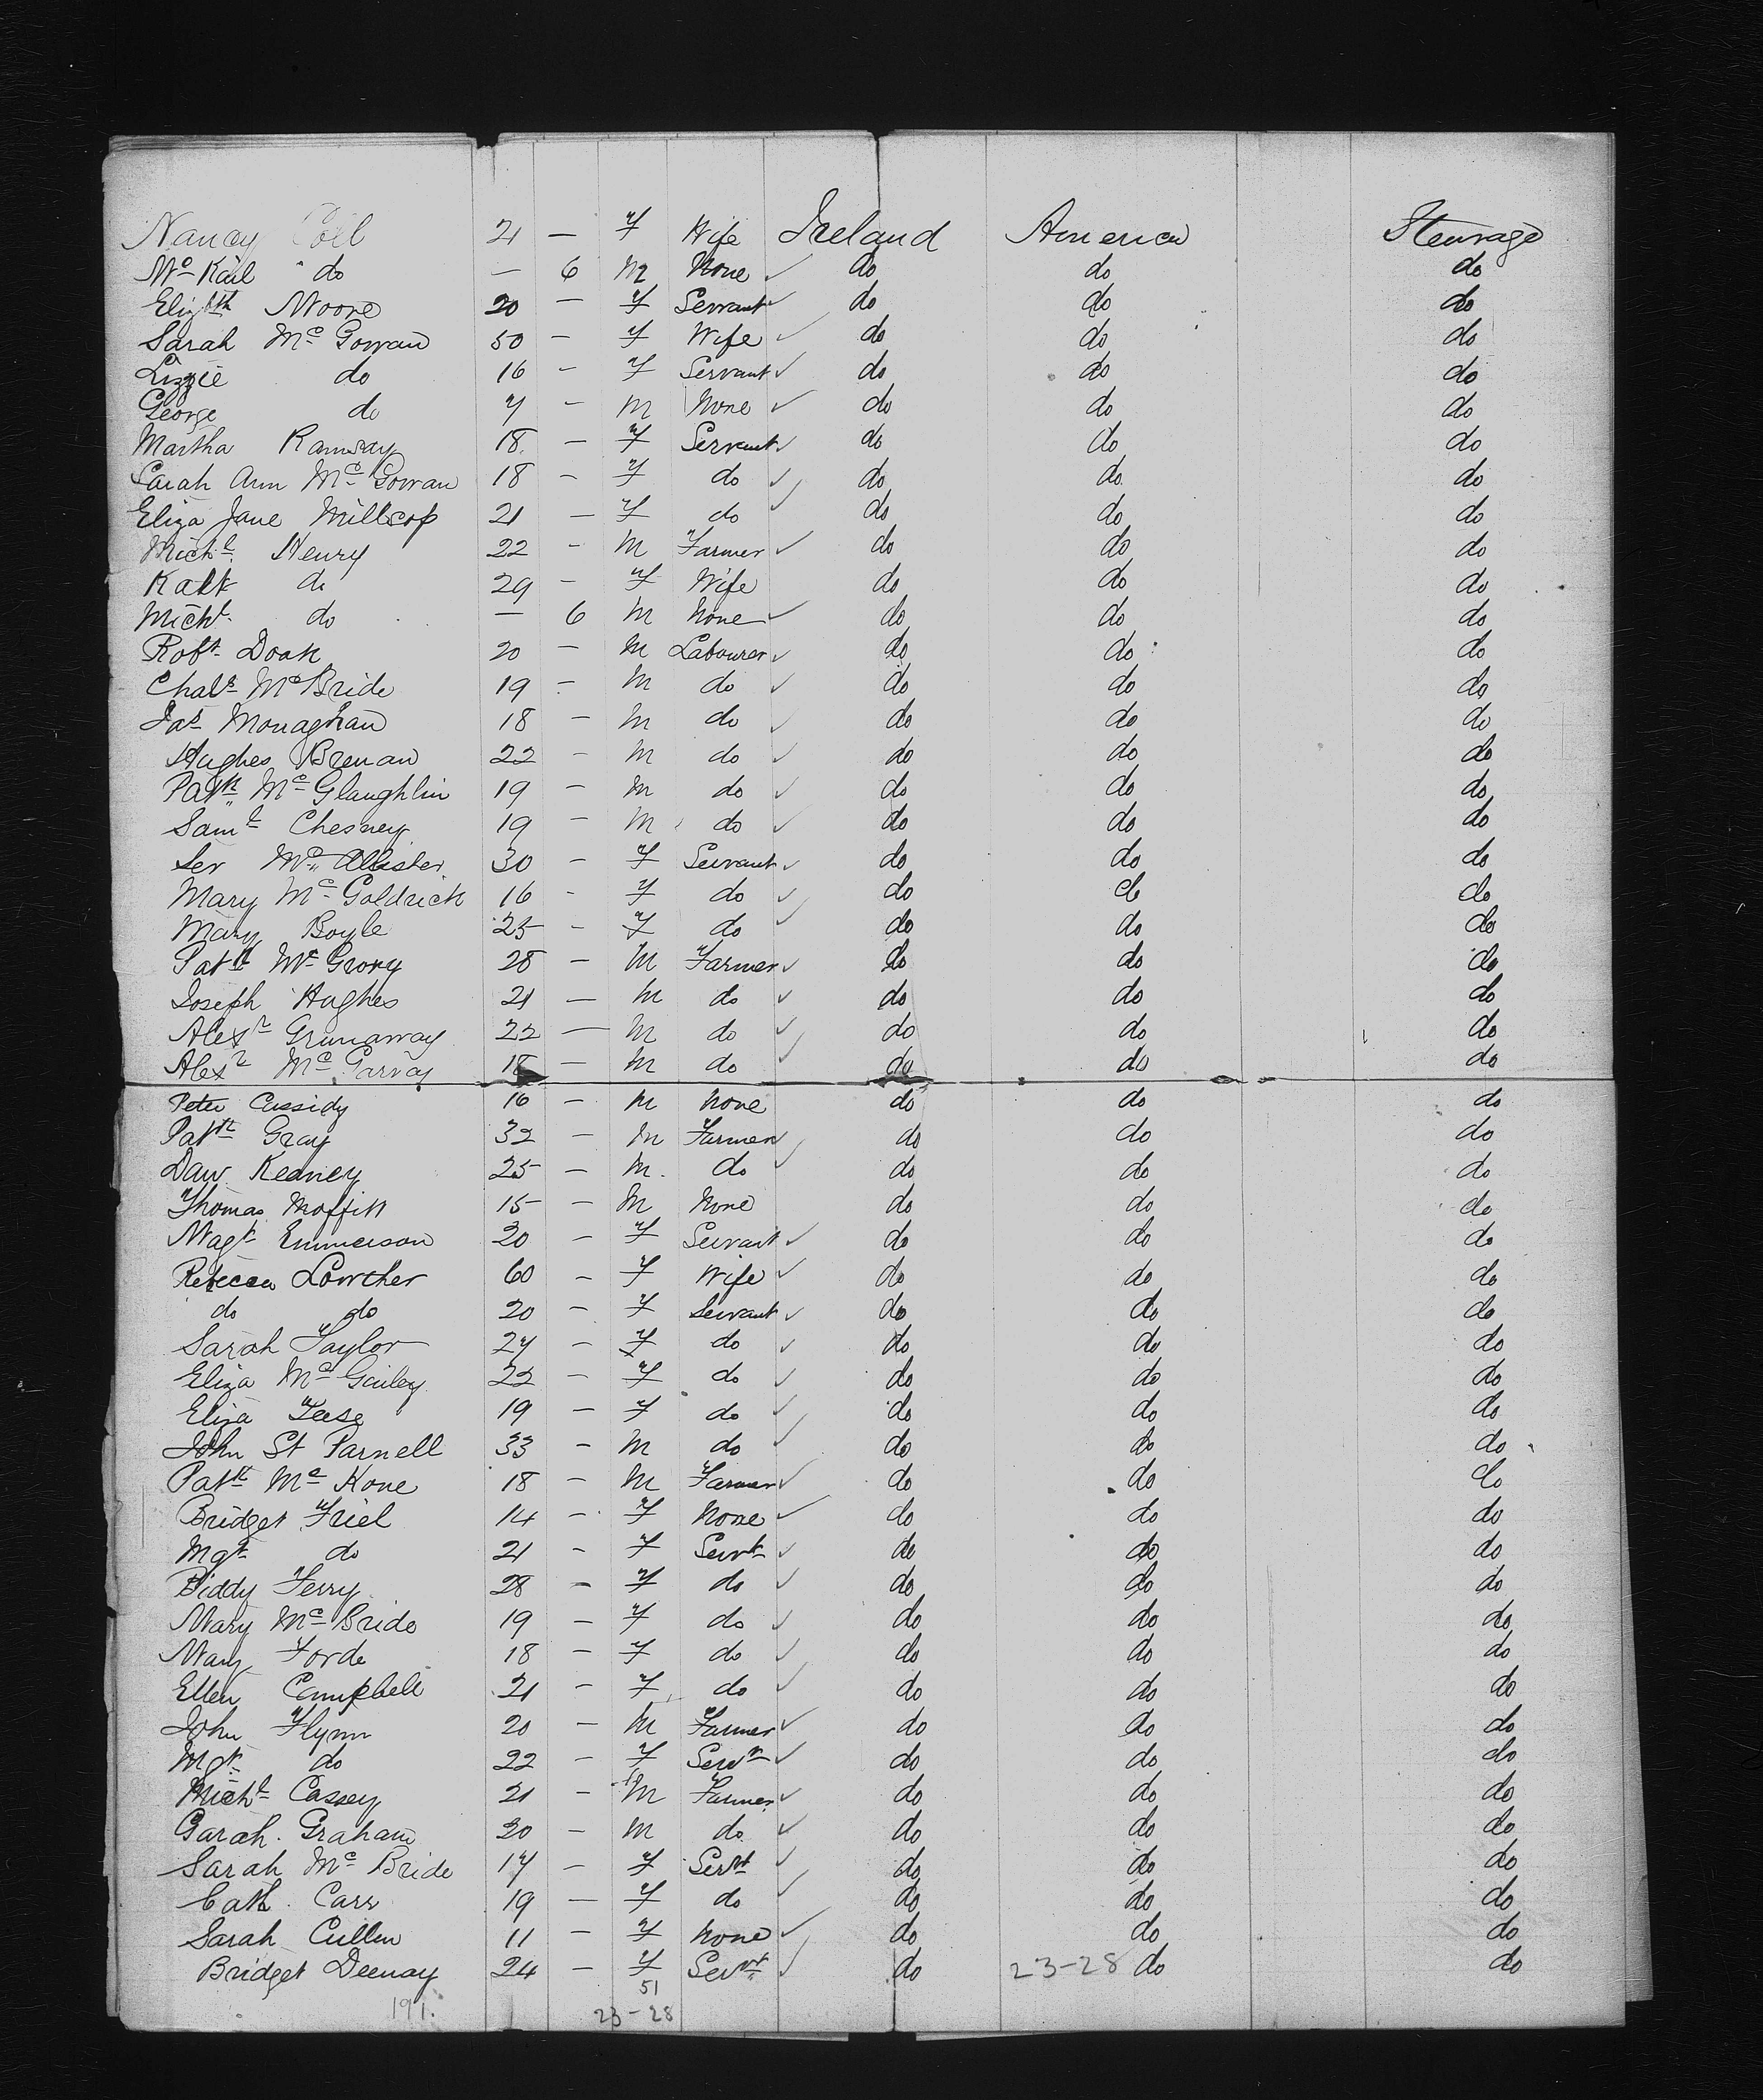 Nancy Coil 21 — F Wife Ireland America Steurage
Mc Kail do — 6 M None ✓ do do do
Elizbth Moore 20 — F Servant ✓ do do do
Sarah Mc Gowan 50 — F Wife ✓ do do do
Lizzie do 16 — F Servant ✓ do do do
George do 7 — M None ✓ do do do
Martha Ramsay 18 — F Servant ✓ do do do
Sarah Ann Mc Gowan 18 — F do ✓ do do do
Eliza Jane Millsop 21 — F do ✓ do do do
Michl Henry 22 — M Farmer ✓ do do do
Kate do 29 — F Wife do do do
Michl do — 6 M None ✓ do do do
Robt Doak 20 — M Labourer ✓ do do do
Chals McBride 19 — M do ✓ do do do
Jas Monaghan 18 — M do ✓ do do do
Hughes Brenan 22 — M do ✓ do do do
Patk Mc Glaughlin 19 — M do ✓ do do do
Saml Chesney 19 — M do ✓ do do do
Mc Allister 30 — F Servant ✓ do do do
Mary Mc Goldrick 16 — F do ✓ do do do
Mary Boyle 25 — F do ✓ do do do
Patk Mc Grory 28 — M Farmer ✓ do do do
Joseph Hughes 21 — M do ✓ do do do
Alexr Grunaway 22 — M do ✓ do do do
Alexr Mc Garvay 18 — M do ✓ do do do
Peter Cassidy 16 — M None do do do
Patk Gray 32 — M Farmer ✓ do do do
Daw Keaney 25 — M do ✓ do do do
Thomas Moffitt 15 — M None do do do
Magt Emmerson 20 — F Servant ✓ do do do
Rebecca Lowther 60 — F Wife ✓ do do do
do do 20 — F Servant ✓ do do do
Sarah Taylor 24 — F do ✓ do do do
Eliza Mc Gailey 22 — F do ✓ do do do
Eliza Tease 19 — F do ✓ do do do
John St Parnell 33 — M do ✓ do do do
Patk Mc Kone 18 — M Farmer ✓ do do do
Bridget Friel 14 — F None ✓ do do do
Mgt do 21 — F Servt ✓ do do do
Biddy Ferry 28 — F do ✓ do do do
Mary Mc Bride 19 — F do ✓ do do do
Mary Forde 18 — F do ✓ do do do
Ellen Campbell 21 — F do ✓ do do do
John Flynn 20 — M Farmer ✓ do do do
Mgt do 22 — F Servt ✓ do do do
Michl Cassey 21 — M Farmer ✓ do do do
Garah. Graham 20 — M do ✓ do do do
Sarah Mc Bride 17 — F Servt ✓ do do do
Cath. Carr 19 — F do ✓ do do do
Sarah Cullen 11 — F None ✓ do do do
Bridget Deenay 24 — F Servt ✓ do 23-28 do do
51
191. 23-28